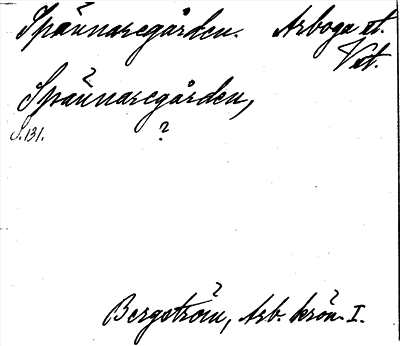 Spännaregården. Arboga st.
Vst.
Spännaregården,
s. 131. ?
Bergström, Arb. krön. I.